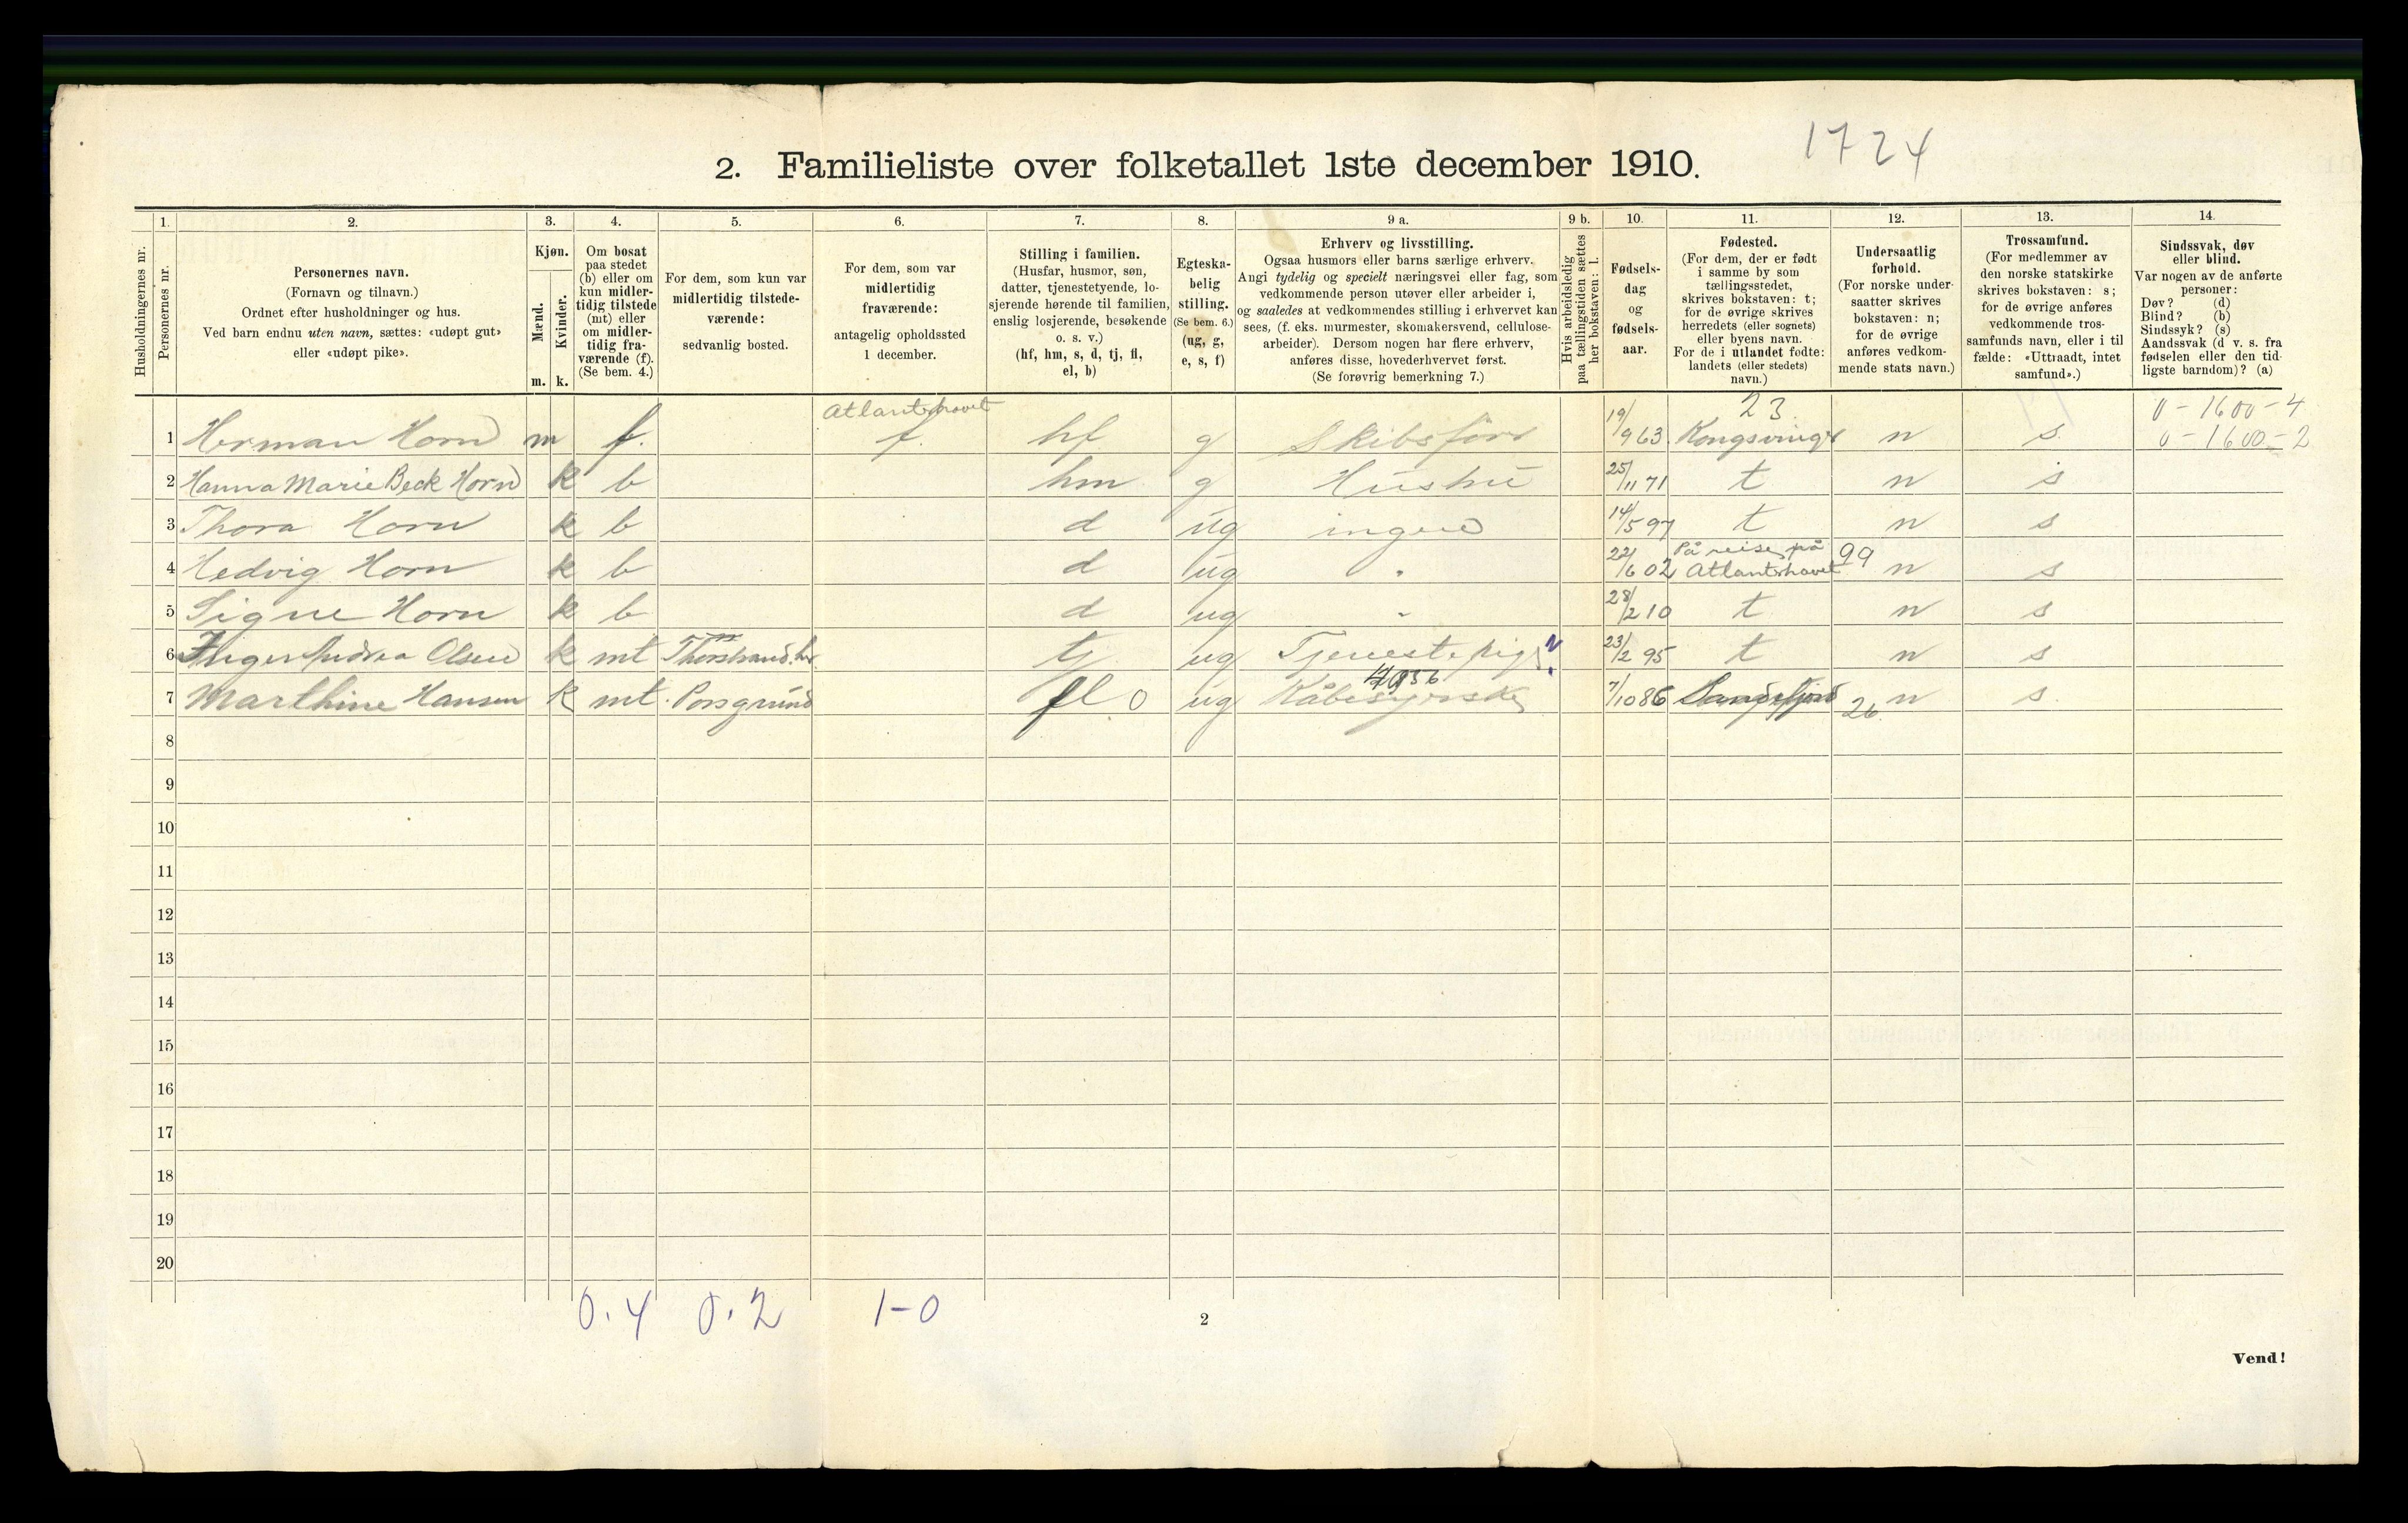 1724
2. Familieliste over folketallet 1ste december 1910.
Husholdningernes nr.
1. Personernes nr.
2. Personernes navn. (Fornavn og tilnavn.) Ordnet efter husholdninger og hus. Ved barn endnu uten navn, sættes: «udøpt gut» eller «udøpt pike».
3. Kjøn. Mænd. m. Kvinder. k.
4. Om bosat paa stedet (b) eller om kun midlertidig tilstede (mt) eller om midlertidig fraværende (f). (Se bem. 4.)
5. For dem, som kun var midlertidig tilstedeværende: sedvanlig bosted.
6. For dem, som var midlertidig fraværende: antagelig opholdssted 1 december.
7. Stilling i familien. (Husfar, husmor, søn, datter, tjenestetyende, losjerende hørende til familien, enslig losjerende, besøkende o. s. v.) (hf, hm, s, d, tj, fl, el, b)
8. Egteskabelig stilling. (Se bem. 6.) (ug, g, e, s, f)
9 a. Erhverv og livsstilling. Ogsaa husmors eller barns særlige erhverv. Angi tydelig og specielt næringsvei eller fag, som vedkommende person utøver eller arbeider i, og saaledes at vedkommendes stilling i erhvervet kan sees, (f. eks. murmester, skomakersvend, cellulosearbeider). Dersom nogen har flere erhverv, anføres disse, hovederhvervet først. (Se forøvrig bemerkning 7.)
9 b. Hvis arbeidsledig paa tællingstiden sættes her bokstaven: l.
10. Fødselsdag og fødselsaar.
11. Fødested. (For dem, der er født i samme by som tællingsstedet, skrives bokstaven: t; for de øvrige skrives herredets (eller sognets) eller byens navn. For de i utlandet fødte: landets (eller stedets) navn.)
12. Undersaatlig forhold. (For norske undersaatter skrives bokstaven: n; for de øvrige anføres vedkommende stats navn.)
13. Trossamfund. (For medlemmer av den norske statskirke skrives bokstaven: s; for de øvrige anføres vedkommende trossamfunds navn, eller i tilfælde: «Uttraadt, intet samfund».)
14. Sindssvak, døv eller blind. Var nogen av de anførte personer: Døv? (d) Blind? (b) Sindssyk? (s) Aandssvak (d v. s. fra fødselen eller den tidligste barndom)? (a)
Atlanterhavet 23. 0-1600-4
1 Herman Horn m f. f. hf g Skibsförer 19/9 63. Kongsvinger n s. 0-1600-2
2 Hanna Marie Beck Horn k b hm g Hustru 25/11 71 t n s
3 Thora Horn k b d ug ingen 14/5 97 t n s
4 Hedvig Horn k b d ug " 22/6 02 På reise på Atlanterhavet 99 n s
5 Signe Horn k b d ug " 28/2 10 t n s
6 Inger Andrea Olsen k mt tj ug Tjenestepige 23/2 95 t n s
7 Marthine Hansen k mt. Porsgrund fl. 0 ug Kåbesyerske 7/10 86 Sandefjord 26 n s.
8
9
10
11
12
13
14
15
16
17
18
19
20
0.4 0.2 1-0
2
Vend!